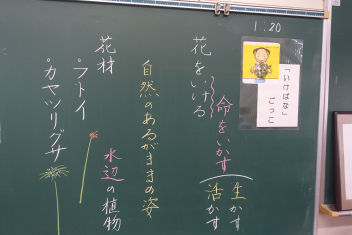 1:20
「いけばな」
ごっこ
花をいける
命をいかす
生かす
活かす
自然のあるがままの姿
花材
・フトイ
・カヤツリグサ
水辺の植物